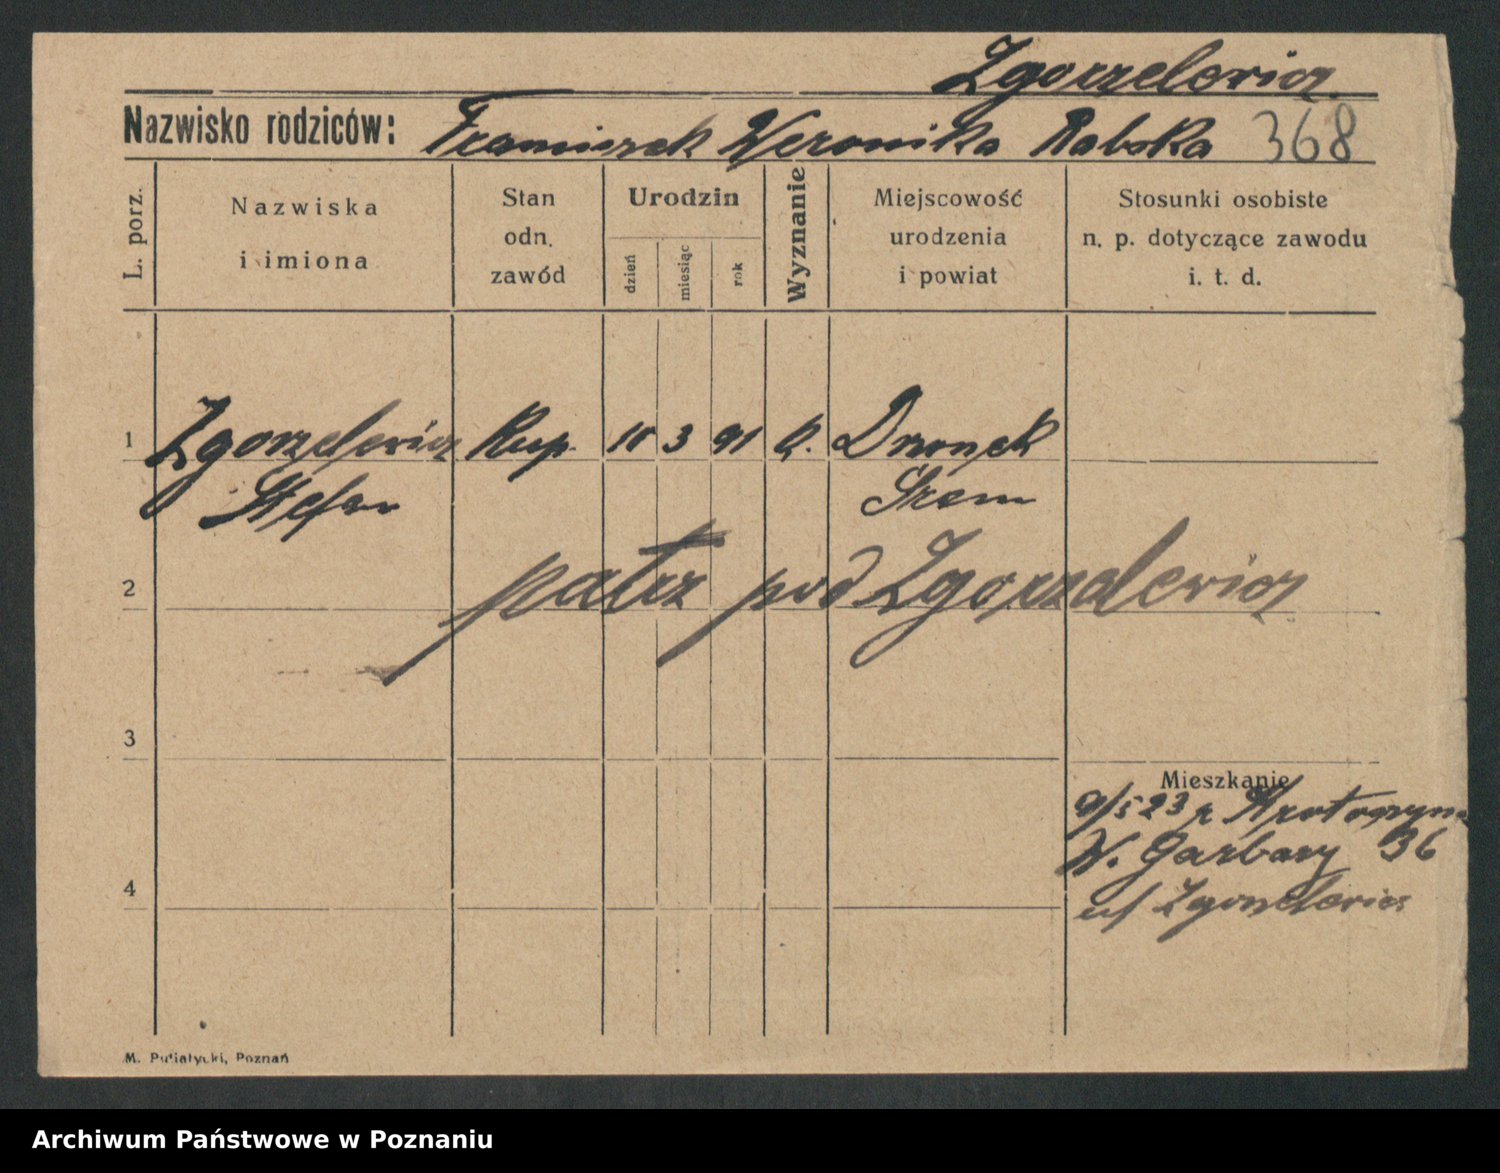 Zgorzelewicz
Nazwisko rodziców: Franciszek Weronika Rabska 368
L. porz.
Nazwiska
i imiona
Stan
odn.
zawód
Urodzin
dzień
miesiąc
rok
Wyznanie
Miejscowość
urodzenia
i powiat
Stosunki osobiste
n. p. dotyczące zawodu
i. t. d.
1 Zgorzelewicz Kup. 10 3 91 k. Dronek
Stefan Szem
2 patrz pod Zgorzelewicz
3
Mieszkanie
9/5 23 z Krotoszyna
W. Garbary 36
4 u/ Zgorzelewicz
M. Putiatycki, Poznań
Archiwum Państwowe w Poznaniu